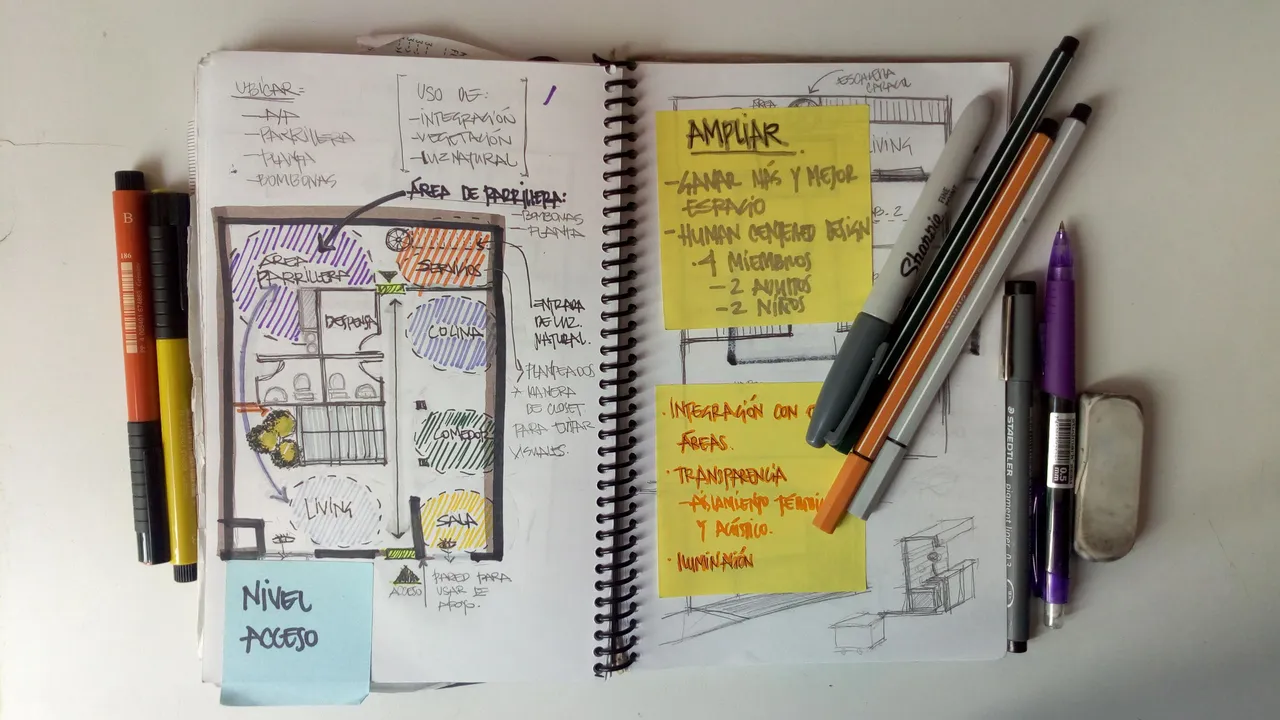 UBICAR=
- A/A
- PARRILLERA
- PLANTA
- BOMBONAS
USO DE:
- INTEGRACIÓN
- VEGETACIÓN
- LUZ NATURAL
ÁREA DE PARRILLERA:
- BOMBONAS
- PLANTA
ÁREA
PARRILLERA
SERVICIOS
DESPENSA
COCINA
ENTRADA
DE LUZ
NATURAL.
DE CLOSET
PARA EVITAR
VISUALES.
COMEDOR
LIVING
SALA
ACCESO
PARED PARA
USAR DE
APOYO.
NIVEL
ACCESO
ESCALERA
CARACOL
ÁREA
LIVING
AMPLIAR
- GANAR MÁS Y MEJOR
ESPACIO
- HUMAN CENTERED DESIGN
· 4 MIEMBROS
- 2 ADULTOS
- 2 NIÑOS
· INTEGRACIÓN CON
ÁREAS.
· TRANSPARENCIA
- AISLAMIENTO
Y ACÚSTICO.
· ILUMINACIÓN
B
186
Sharpie
FINE
STAEDTLER
pigment liner 0.3
0.5
mm